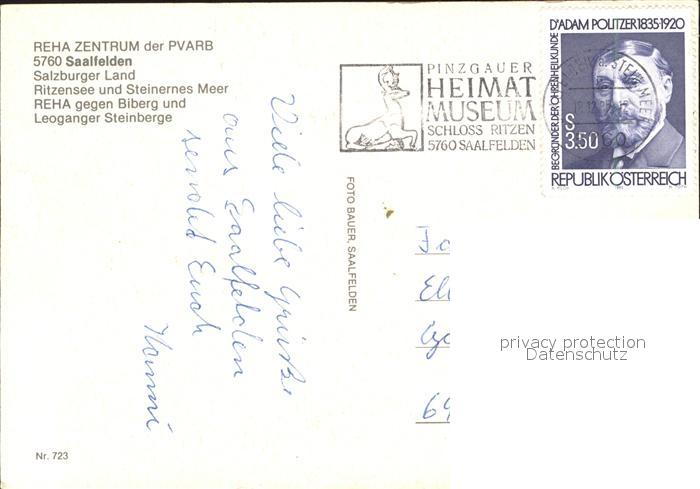 REHA ZENTRUM der PVARB
5760 Saalfelden
Salzburger Land
Ritzensee und Steinernes Meer
REHA gegen Biberg und
Leoganger Steinberge
PINZGAUER
HEIMAT
MUSEUM
SCHLOSS RITZEN
5760 SAALFELDEN
DR ADAM POLITZER 1835-1920
BEGRÜNDER DER OHRENHEILKUNDE
S
3.50
REPUBLIK ÖSTERREICH
Viele liebe Grüße
aus Saalfelden
sendet Euch
Hanni
FOTO BAUER, SAALFELDEN
privacy protection
Datenschutz
Nr. 723